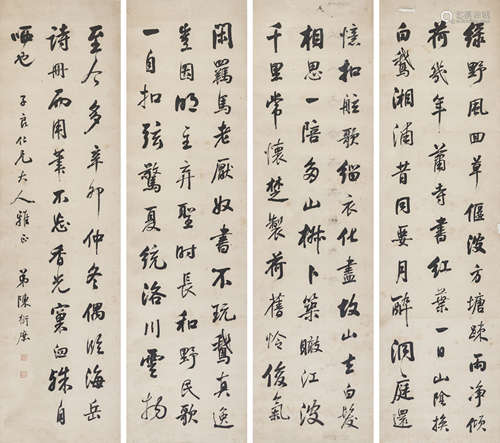 綠野風回草偃波方塘疎雨净傾
荷幾年蕭寺書紅葉一日山陰換
白鵝湘浦昔同要月醉洞庭還
憶扣舷歌緇衣化盡故山去白髮
相思一陪多山椒卜築瞰江波
千里常懷楚製荷舊怜俊氣
閑羈馬老厭奴書不玩鵝真逸
豈因明主弃聖時長和野民歌
一自扣弦驚夏統洛川雲物
至今多辛卯仲冬偶臨海岳
詩册而用筆不忘香光窠臼殊自
哂也
子良仁兄大人雅正
弟陳衍庶